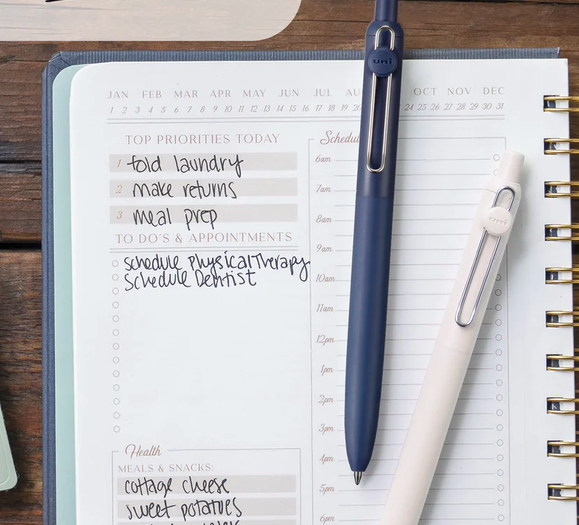 JAN FEB MAR APR MAY JUN JUL OCT NOV DEC
1 2 3 4 5 6 7 8 9 10 11 12 13 14 15 16 17 18 19 24 25 26 27 28 29 30 31
TOP PRIORITIES TODAY
1 fold laundry
2 make returns
3 meal prep
TO DO'S & APPOINTMENTS
schedule Physical Therapy
Schedule Dentist
Health
MEALS & SNACKS:
cottage cheese
sweet potatoes
6am
7am
8am
9am
10am
11am
12pm
1pm
2pm
3pm
4pm
5pm
uni
uni